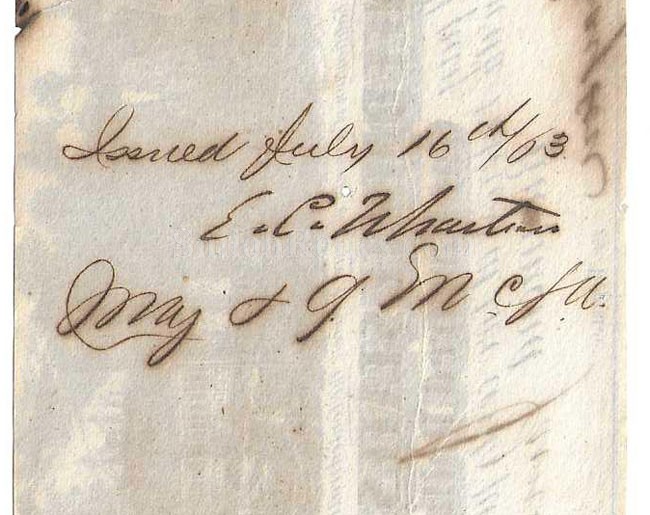 Issued July 16th/63
E. C. Wharton
Maj & Q. M. C.S.A.